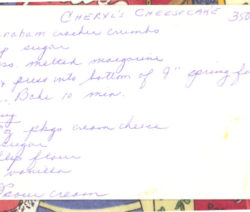 CHERYL'S CHEESECAKE 350
graham cracker crumbs
sugar
melted margarine
press into bottom of 9" spring fo
Bake 10 min.
pkgs cream cheese
sugar
flour
vanilla
sour cream